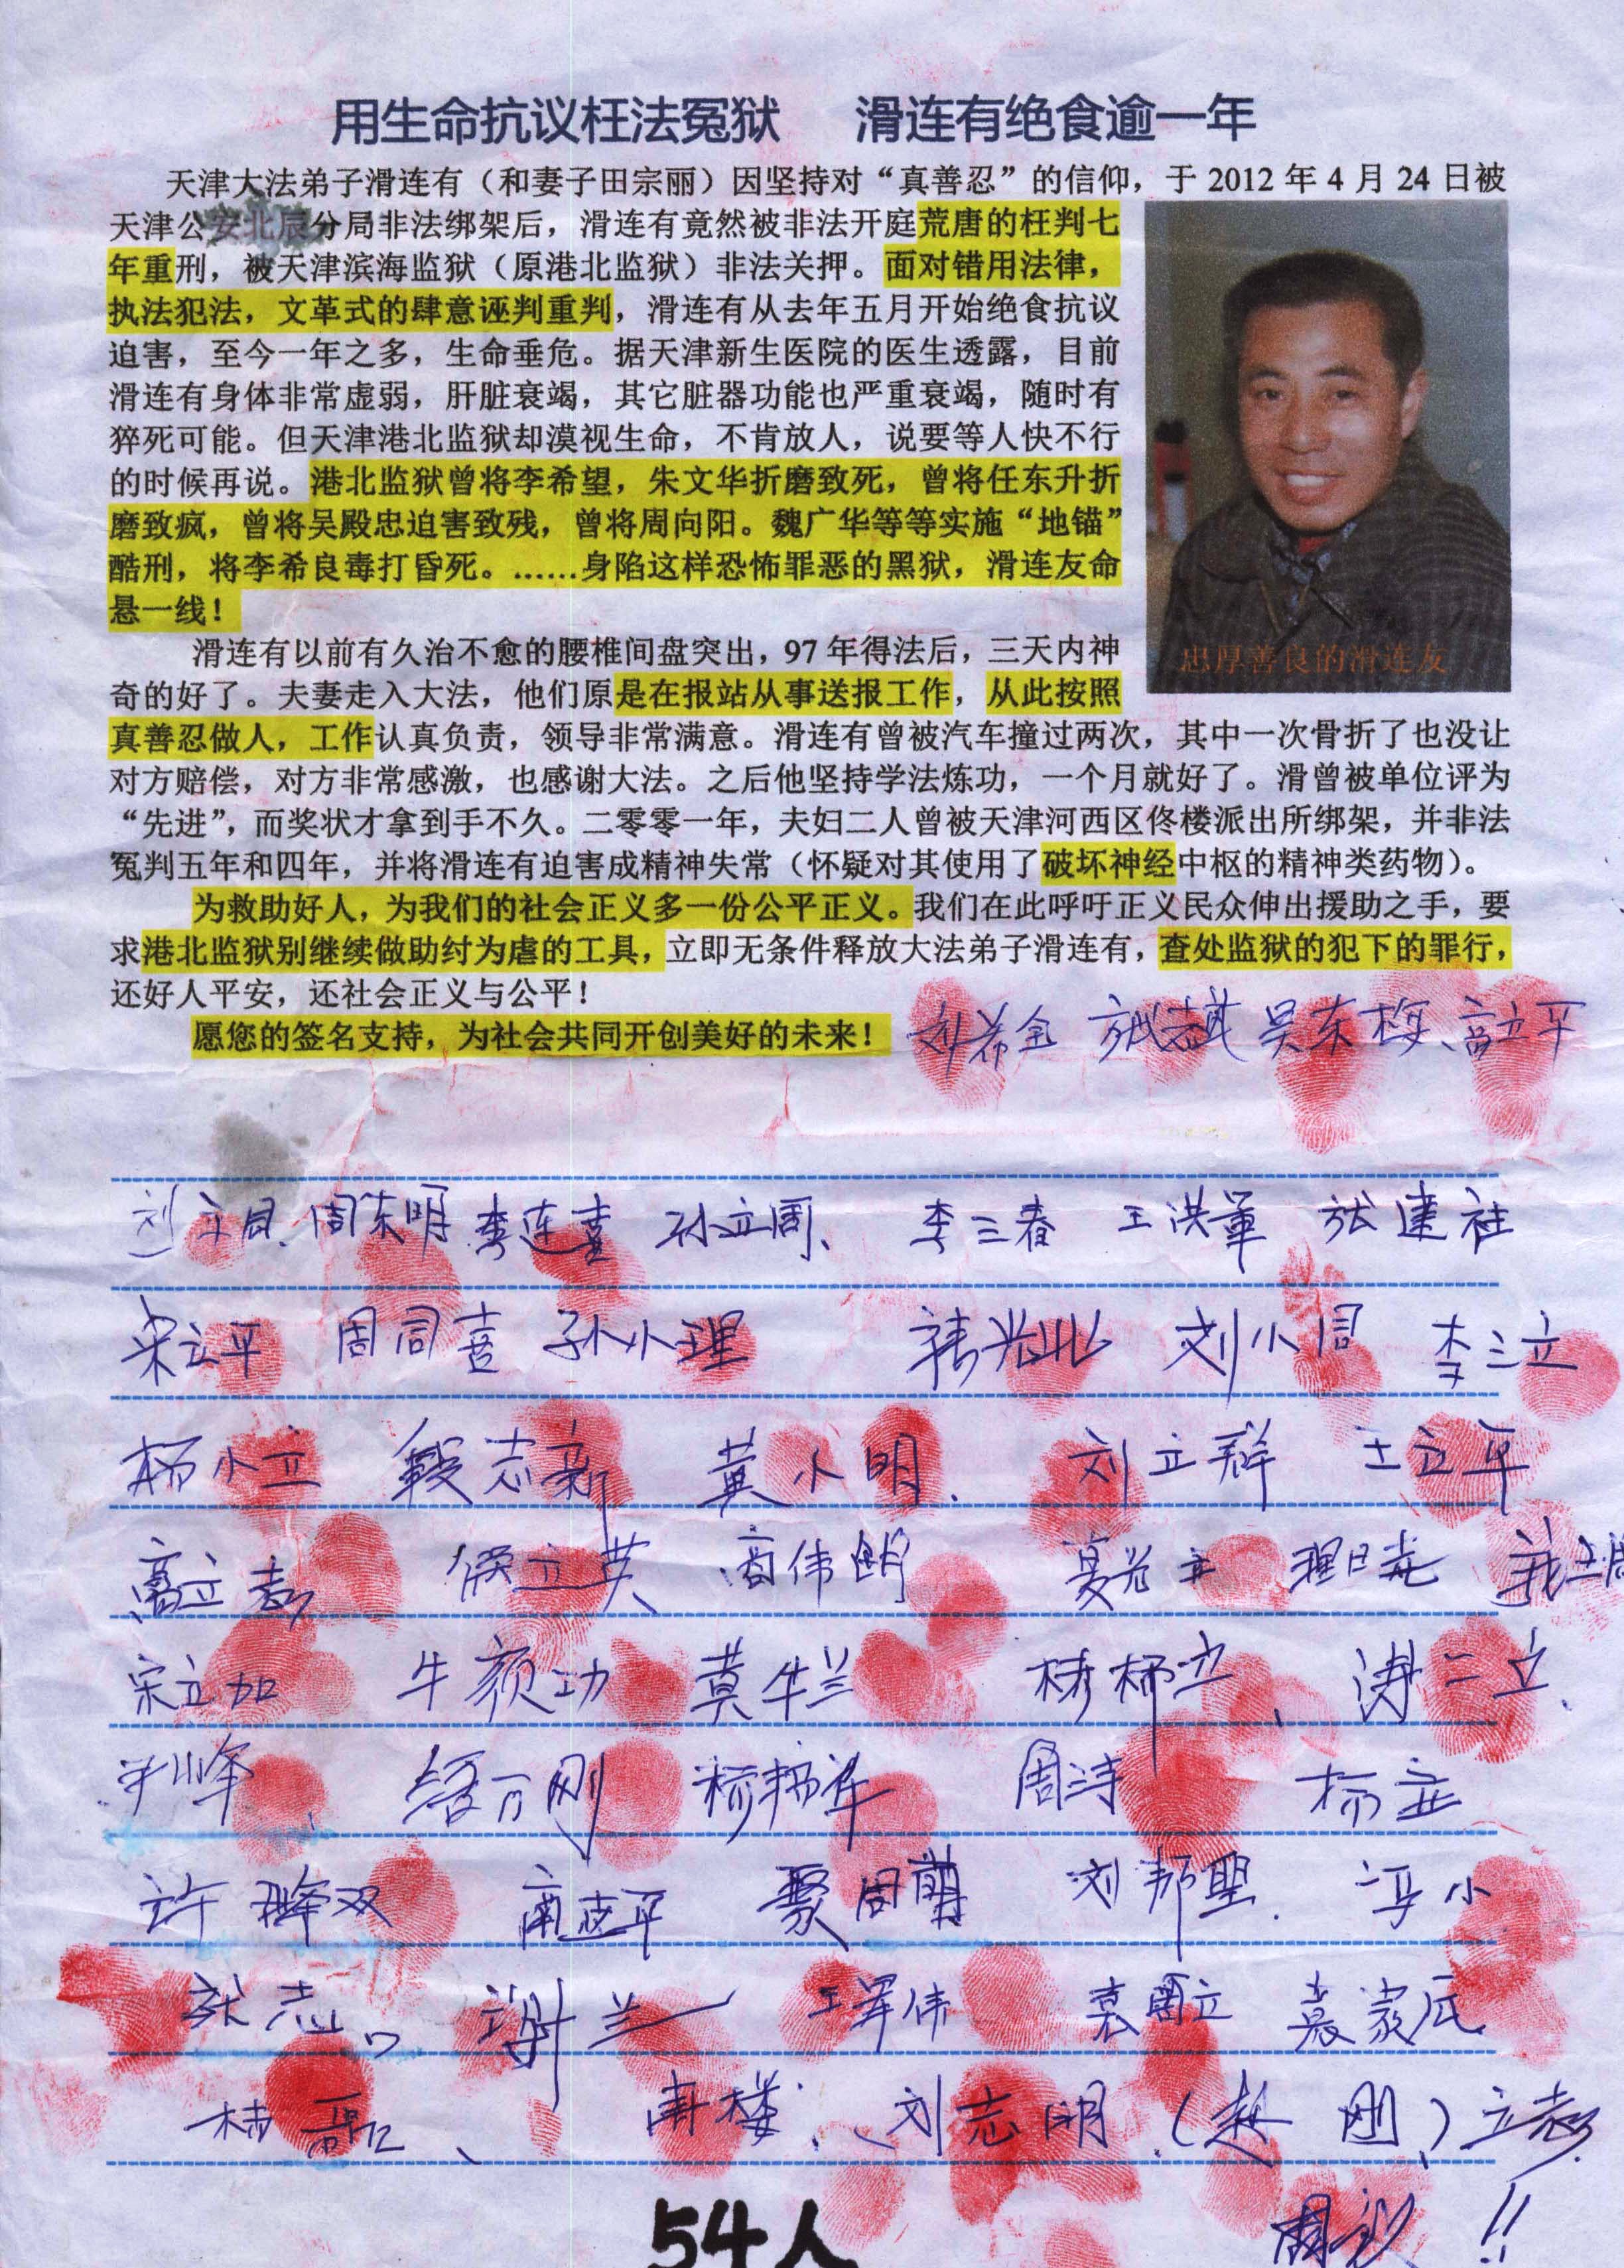 用生命抗议枉法冤狱 滑连有绝食逾一年
天津大法弟子滑连有（和妻子田宗丽）因坚持对“真善忍”的信仰，于 2012 年 4 月 24 日被
天津公安北辰分局非法绑架后，滑连有竟然被非法开庭荒唐的枉判七
年重刑，被天津滨海监狱（原港北监狱）非法关押。面对错用法律，
执法犯法，文革式的肆意诬判重判，滑连有从去年五月开始绝食抗议
迫害，至今一年之多，生命垂危。据天津新生医院的医生透露，目前
滑连有身体非常虚弱，肝脏衰竭，其它脏器功能也严重衰竭，随时有
猝死可能。但天津港北监狱却漠视生命，不肯放人，说要等人快不行
的时候再说。港北监狱曾将李希望，朱文华折磨致死，曾将任东升折
磨致疯，曾将吴殿忠迫害致残，曾将周向阳。魏广华等等实施“地锚”
酷刑，将李希良毒打昏死。……身陷这样恐怖罪恶的黑狱，滑连友命
悬一线！
忠厚善良的滑连友
滑连有以前有久治不愈的腰椎间盘突出，97 年得法后，三天内神
奇的好了。夫妻走入大法，他们原是在报站从事送报工作，从此按照
真善忍做人，工作认真负责，领导非常满意。滑连有曾被汽车撞过两次，其中一次骨折了也没让
对方赔偿，对方非常感激，也感谢大法。之后他坚持学法炼功，一个月就好了。滑曾被单位评为
“先进”，而奖状才拿到手不久。二零零一年，夫妇二人曾被天津河西区佟楼派出所绑架，并非法
冤判五年和四年，并将滑连有迫害成精神失常（怀疑对其使用了破坏神经中枢的精神类药物）。
为救助好人，为我们的社会正义多一份公平正义。我们在此呼吁正义民众伸出援助之手，要
求港北监狱别继续做助纣为虐的工具，立即无条件释放大法弟子滑连有，查处监狱的犯下的罪行，
还好人平安，还社会正义与公平！
愿您的签名支持，为社会共同开创美好的未来！
刘希全 吴东梅、高立平
刘立同、周东明 李连喜 孙立周、 李三春 王洪军 张建社
宋立平 周同喜 孙小理 刘小同 李三立
杨小立 段志新 黄小明. 刘立群 王立平
高立志 侯立英 高伟明
宋立加 牛颜功 莫牛兰
周涛 杨立
许峰双 高志平 刘邦聖. 冯小
张志 谢兰 王军伟 袁国立 袁家辰
南楼、刘志明（赵刚）立志
54人
!!